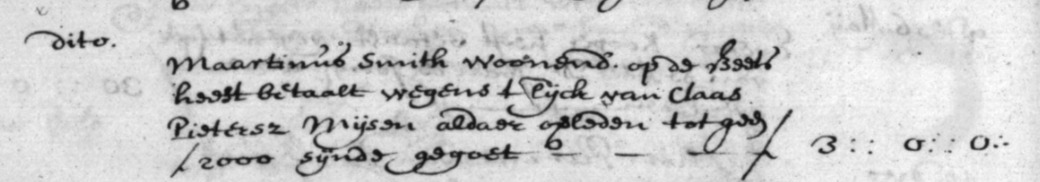 dito.
Maartinus Smith woonend. op de Beets
heeft betaalt wegens t Lijck van Claas
Pietersz Mijsen aldaer opleden tot geen
f 2000 sijnde gegoet — — — f 3:: 0:: 0:-